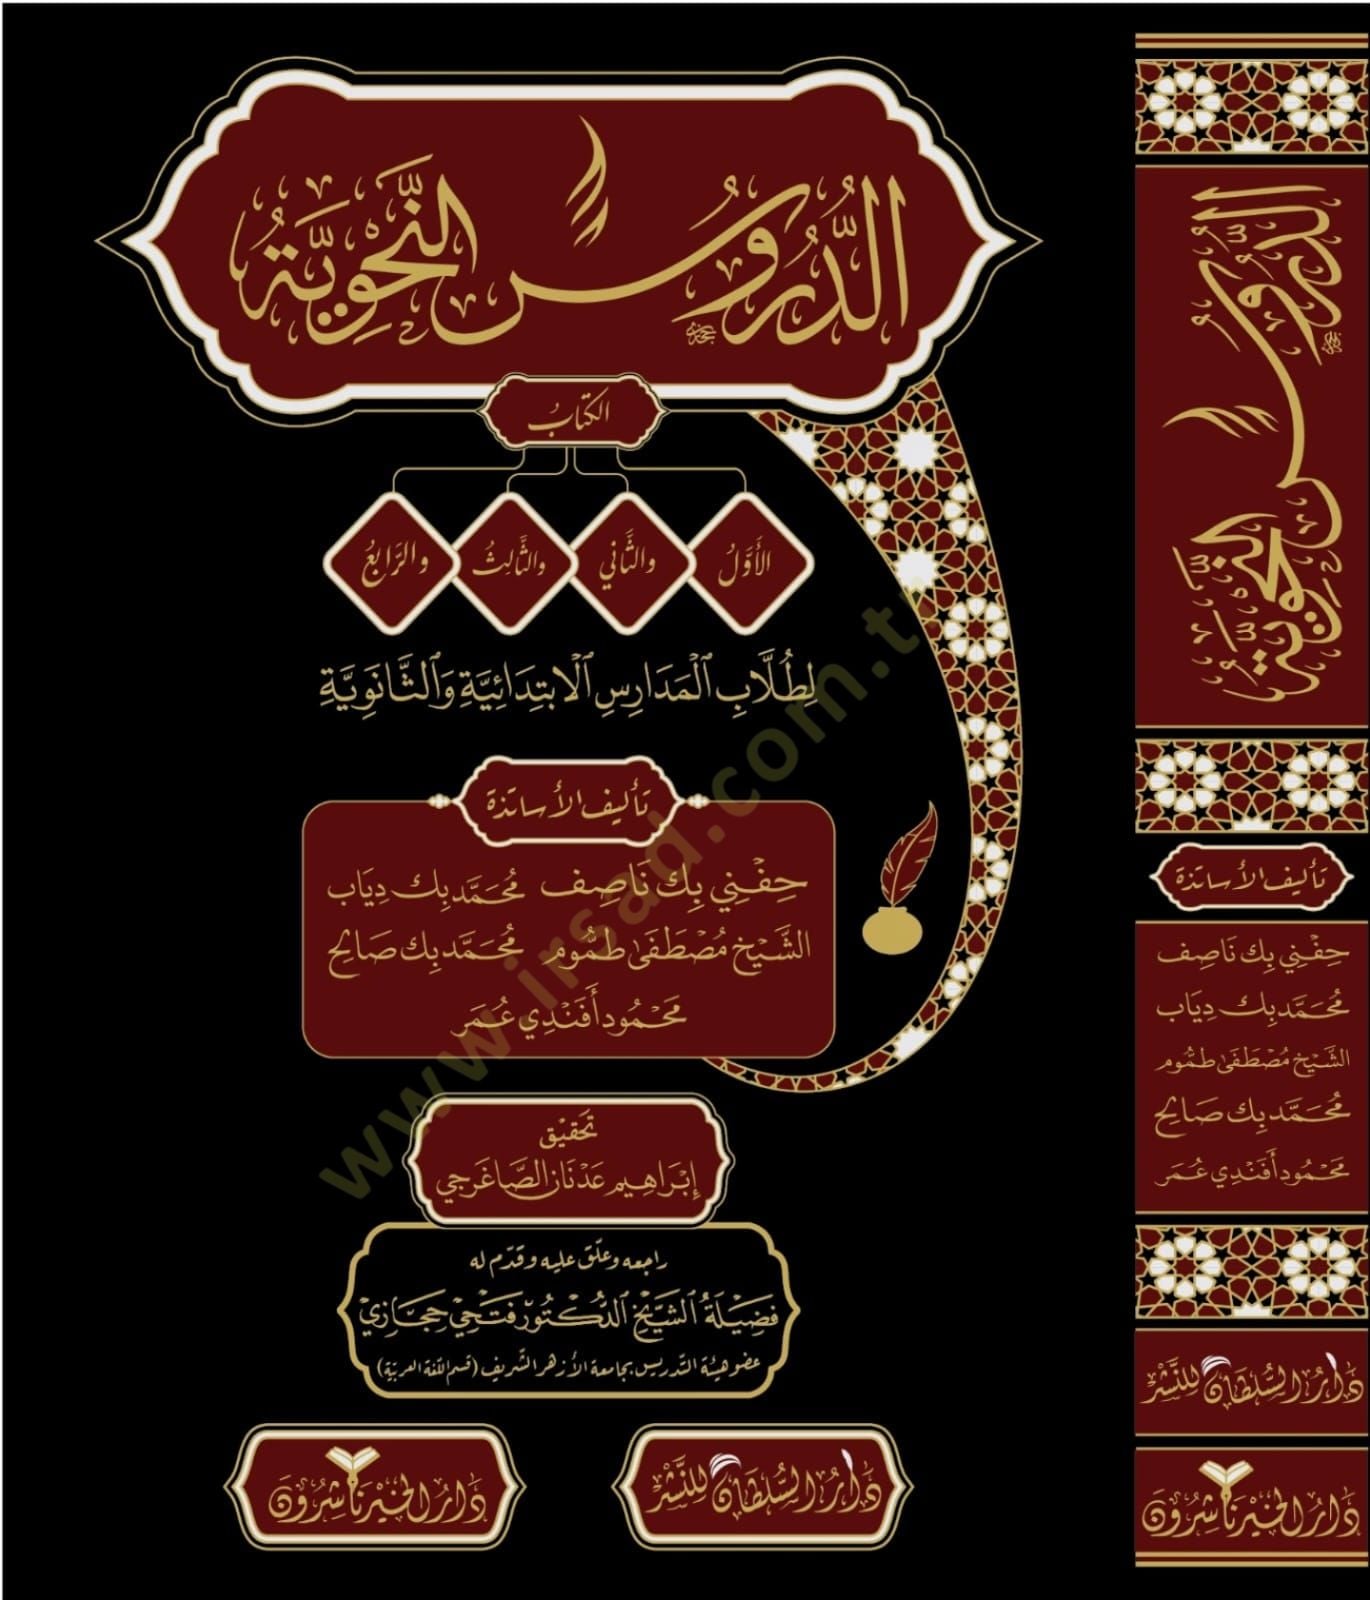 الدُّرُوسُ النَّحْوِيَّةُ
الكتابُ
الأَوَّلُ والثَّاني والثَّالِثُ والرَّابِعُ
لِطُلَّابِ الْمَدَارِسِ الْابْتِدَائِيَّةِ وَالثَّانَوِيَّةِ
تأليف الأساتذة
حِفْنِي بِك نَاصِف مُحَمَّد بِك دِيَاب
الشَّيْخ مُصْطَفَى طَمُّوم مُحَمَّد بِك صَالِح
مَحْمُود أَفَنْدِي عُمَر
تَحْقِيْق
إِبْرَاهِيم عَدْنَان الصَّاغَرجِي
راجعه وعلّق عليه وقدّم له
فَضِيْلَةُ الشَّيْخِ الدُّكْتُور فَتْحِي حِجَازِي
عضو هيئة التّدريس بجامعة الأزهر الشّريف (قسم اللّغة العربيّة)
دَارُ السُّلْطَان لِلنَّشْر
دَارُ الخَيْر نَاشِرُوْنَ
www.irsad.com.t
الدُّرُوسُ النَّحْوِيَّةُ
تأليف الأساتذة
حِفْنِي بِك نَاصِف
مُحَمَّد بِك دِيَاب
الشَّيْخ مُصْطَفَى طَمُّوم
مُحَمَّد بِك صَالِح
مَحْمُود أَفَنْدِي عُمَر
دَارُ السُّلْطَان لِلنَّشْر
دَارُ الخَيْر نَاشِرُوْنَ